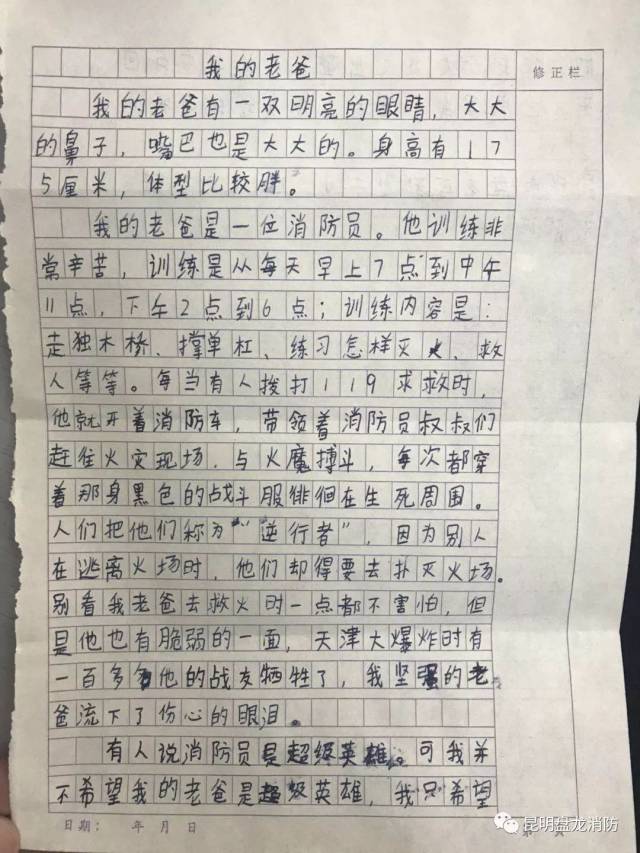 我的老爸
修正栏
我的老爸有一双明亮的眼睛，大大
的鼻子，嘴巴也是大大的。身高有17
5厘米，体型比较胖。
我的老爸是一位消防员。他训练非
常辛苦，训练是从每天早上7点到中午
11点，下午2点到6点；训练内容是：
走独木桥、撑单杠、练习怎样灭火、救
人等等。每当有人拨打119求救时，
他就开着消防车，带领着消防员叔叔们
赶往火灾现场，与火魔搏斗，每次都穿
着那身黑色的战斗服徘徊在生死周围。
人们把他们称为“逆行者”，因为别人
在逃离火场时，他们却得要去扑灭火场。
别看我老爸去救火时一点都不害怕，但
是他也有脆弱的一面，天津大爆炸时有
一百多名他的战友牺牲了，我坚强的老
爸流下了伤心的眼泪。
有人说消防员是超级英雄。可我并
不希望我的老爸是超级英雄，我只希望
日期： 年 月 日
昆明盘龙消防